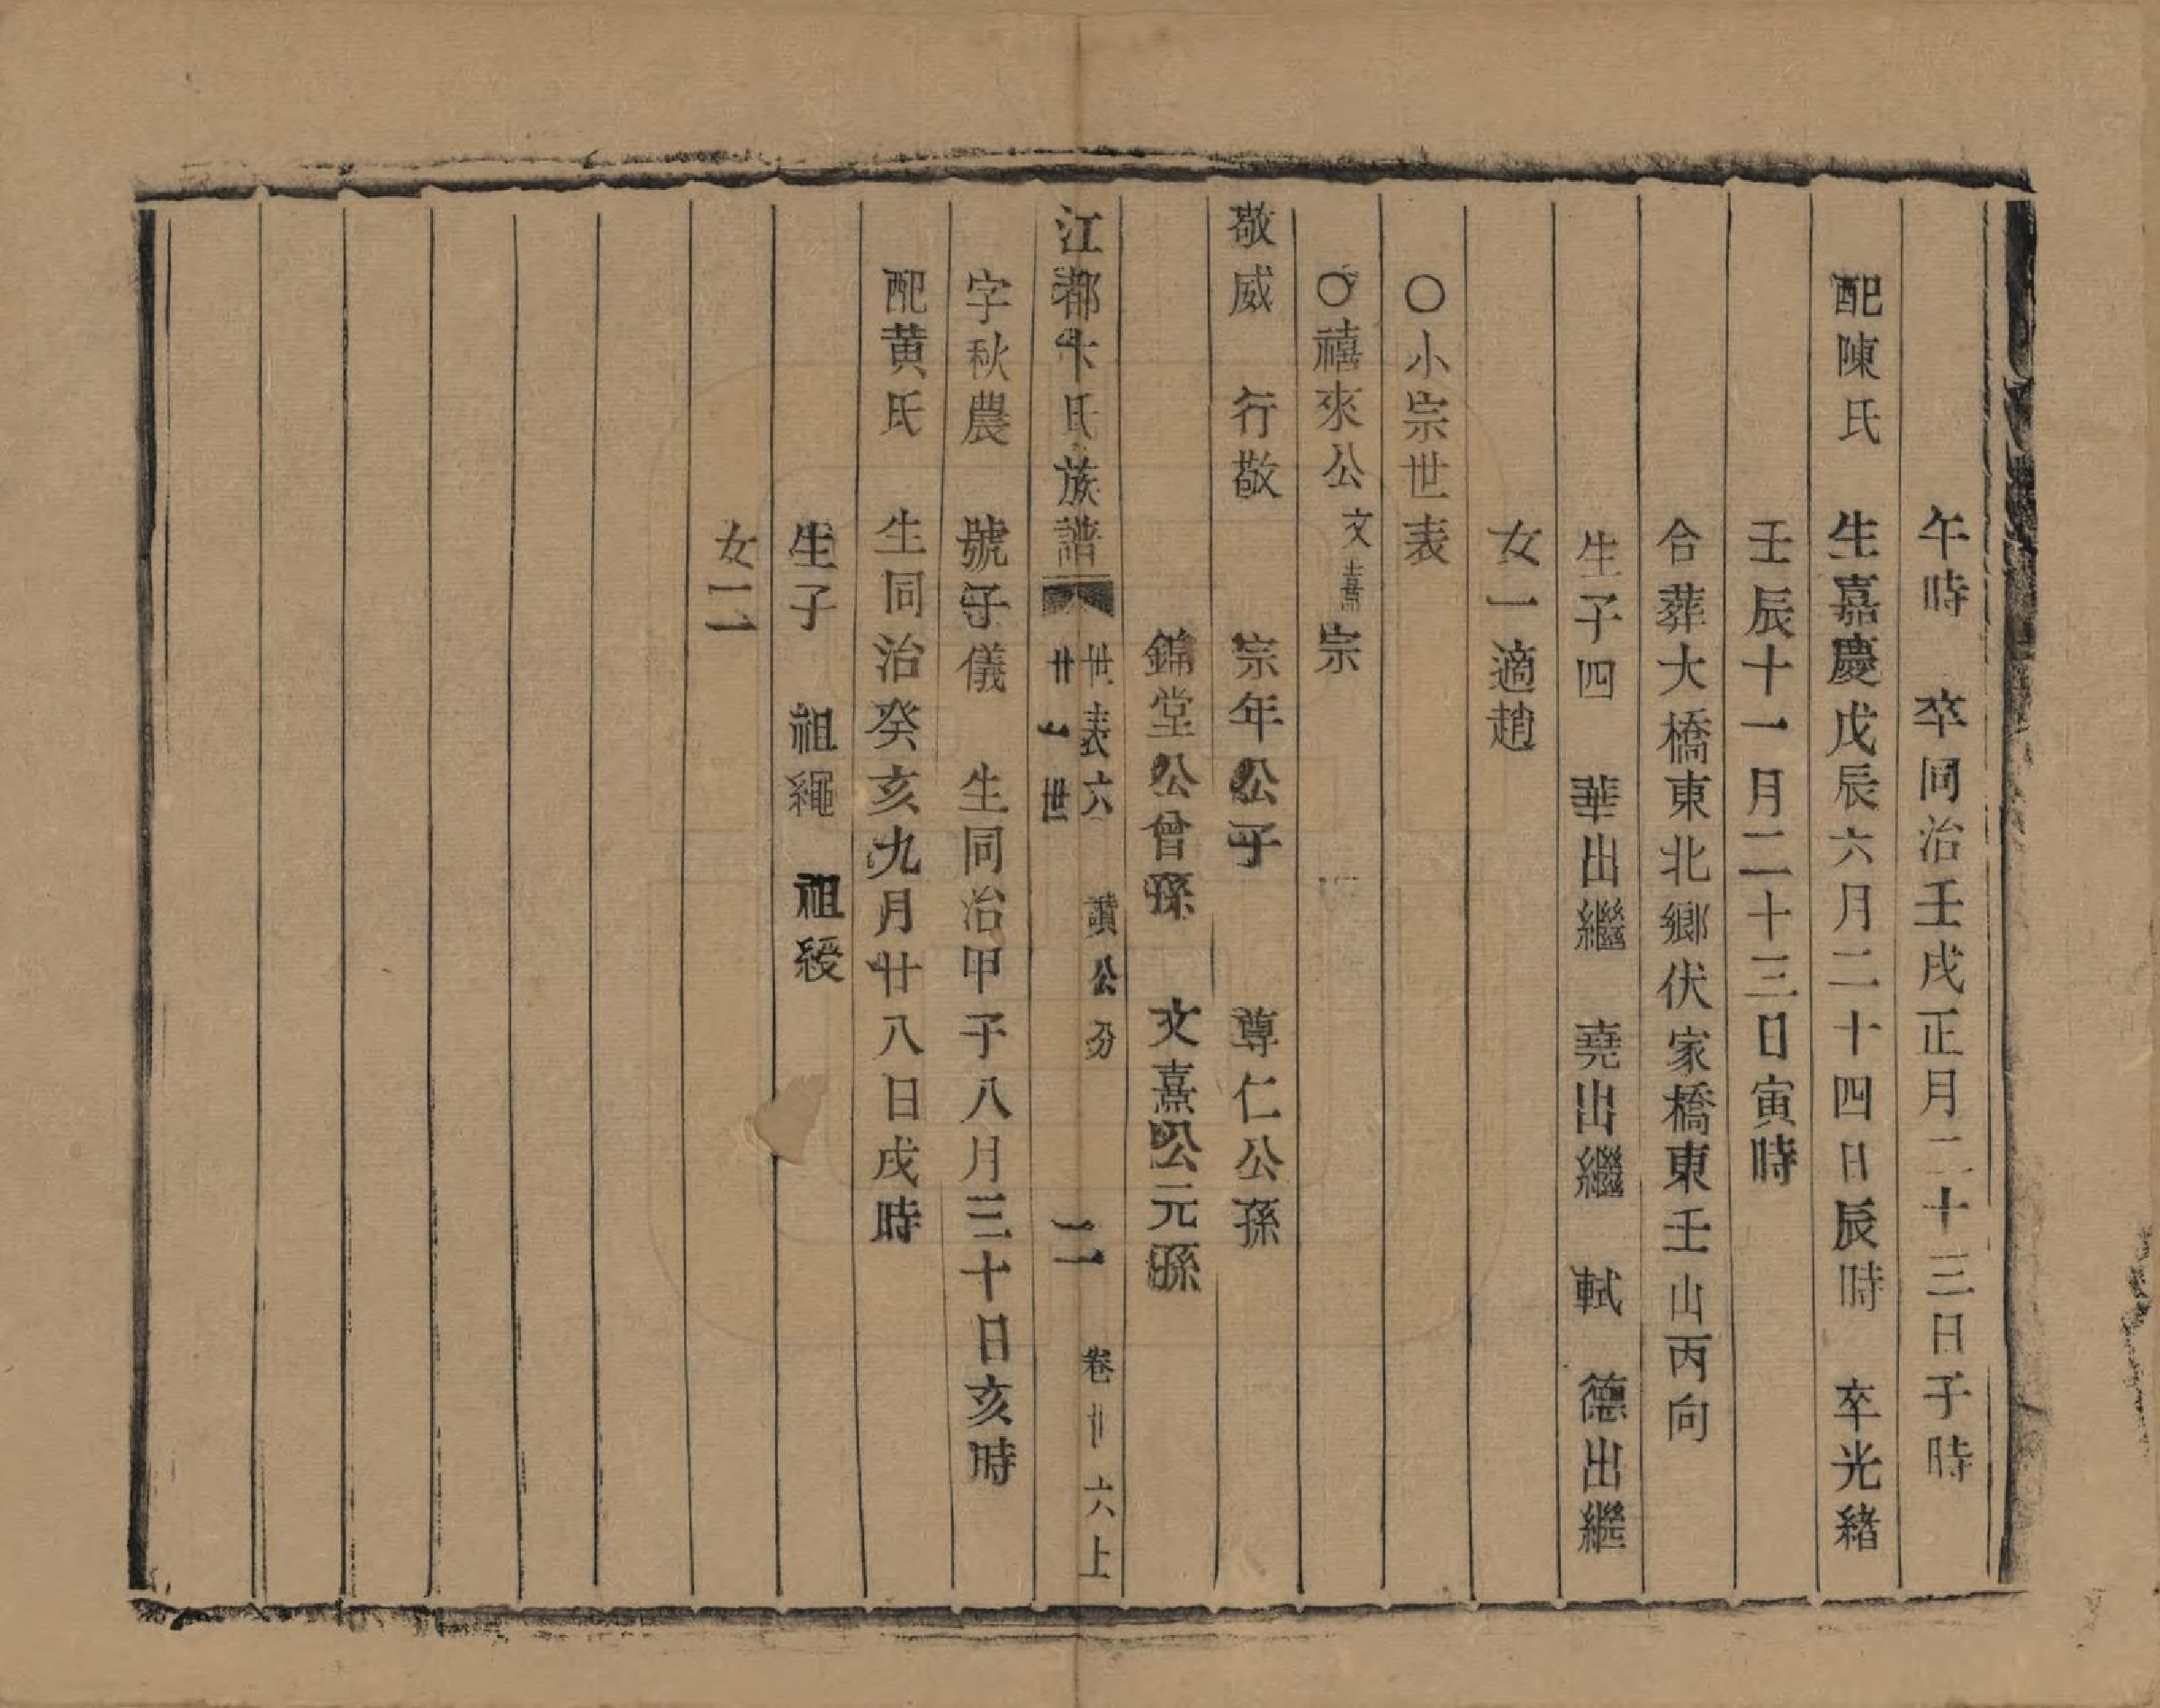 午時　卒同治壬戌正月二十三日子時
配陳氏　生嘉慶戊辰六月二十四日辰時　卒光緒
壬辰十一月二十三日寅時
合葬大橋東北鄉伏家橋東壬山丙向
生子四　華出繼　堯出繼　軾　德出繼
女一適趙
〇小宗世表
〇禧來公文熹宗
敬威　行敬　宗年公子　尊仁公孫
錦堂公曾孫　文熹公元孫
江都卞氏族譜　世表六　讚公分　廿一世　二　卷廿六上
字秋農　號子儀　生同治甲子八月三十日亥時
配黄氏　生同治癸亥九月廿八日戌時
生子　祖繩　祖綬
女二